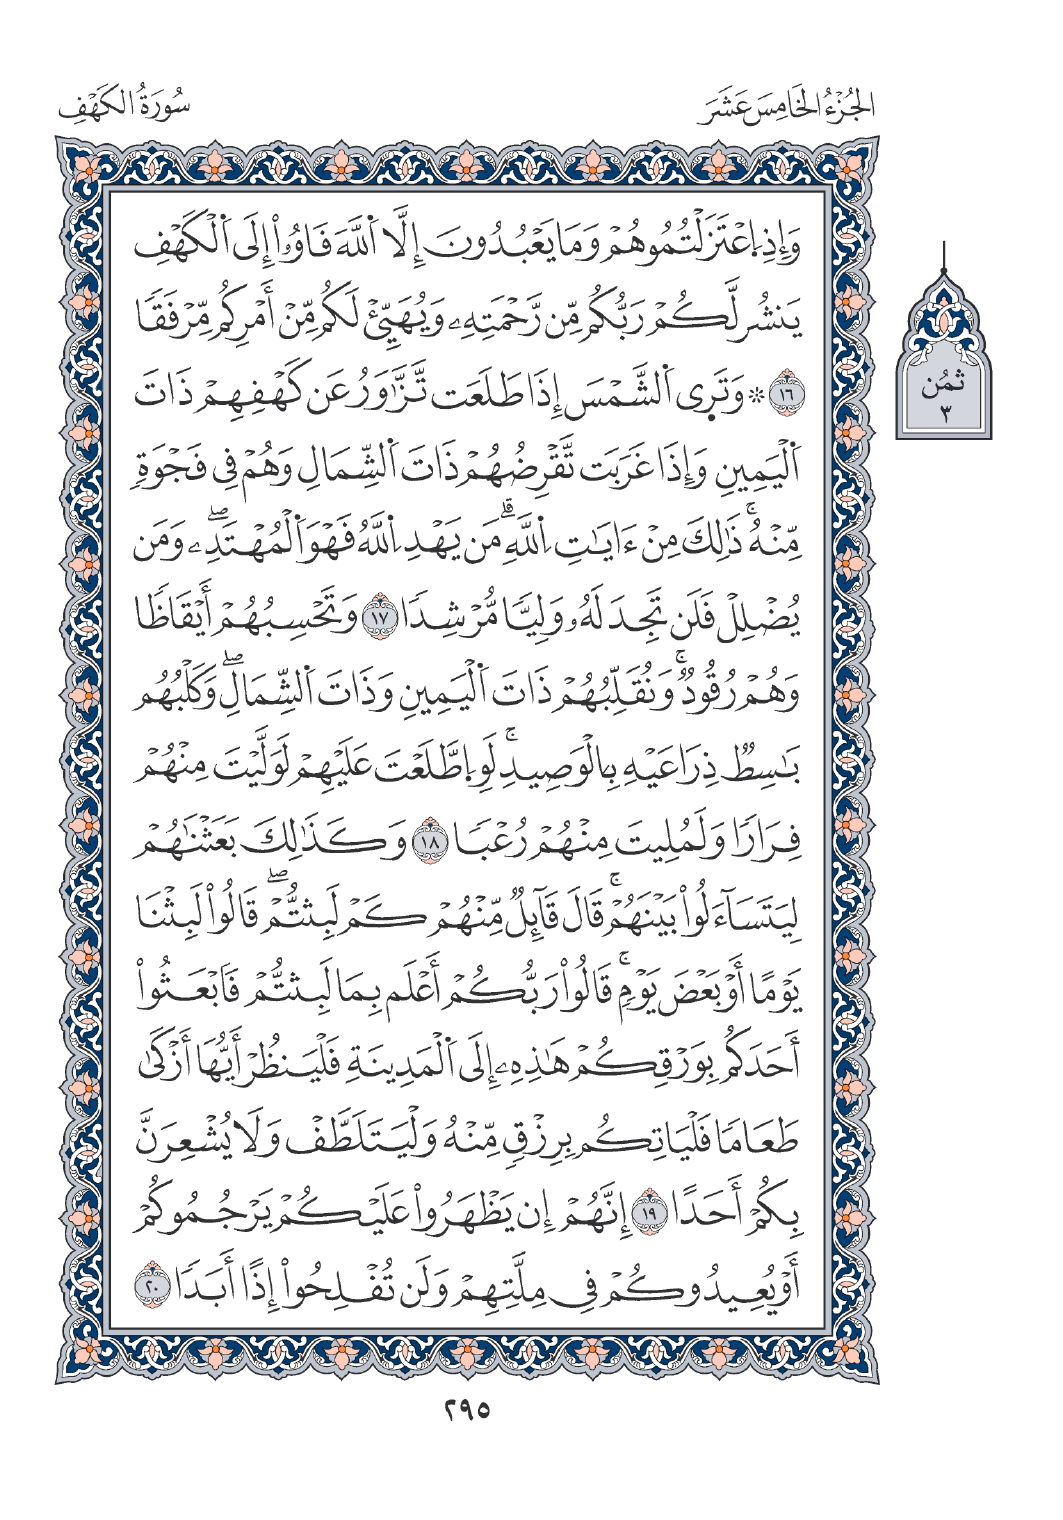 الجُزْءُ الخَامِسَ عَشَرَ
سُورَةُ الكَهْفِ
وَإِذِ اِعْتَزَلْتُمُوهُمْ وَمَا يَعْبُدُونَ إِلَّا اَللَّهَ فَاوُۥٓاْ إِلَى اَلْكَهْفِ
يَنشُر لَّكُمْ رَبُّكُم مِّن رَّحْمَتِهِۦ وَيُهَيِّئْ لَكُم مِّنْ أَمْرِكُم مِّرْفَقٗا
۞ ١٦ وَتَرَى اَلشَّمْسَ إِذَا طَلَعَت تَّزَّٰوَرُ عَن كَهْفِهِمْ ذَاتَ
ثمُن
٣
اَلْيَمِينِ وَإِذَا غَرَبَت تَّقْرِضُهُمْ ذَاتَ اَلشِّمَالِ وَهُمْ فِي فَجْوَةٖ
مِّنْهُۚ ذَٰلِكَ مِنْ ءَايَٰتِ اِللَّهِۗ مَن يَهْدِ اِللَّهُ فَهْوَ اَلْمُهْتَدِۦۖ وَمَن
يُضْلِلْ فَلَن تَجِدَ لَهُۥ وَلِيّٗا مُّرْشِدٗا ١٧ وَتَحْسِبُهُمْ أَيْقَاظٗا
وَهُمْ رُقُودٞۚ وَنُقَلِّبُهُمْ ذَاتَ اَلْيَمِينِ وَذَاتَ اَلشِّمَالِۖ وَكَلْبُهُم
بَٰسِطٞ ذِرَاعَيْهِ بِالْوَصِيدِۚ لَوِ اِطَّلَعْتَ عَلَيْهِمْ لَوَلَّيْتَ مِنْهُمْ
فِرَارٗا وَلَمُلِيتَ مِنْهُمْ رُعْبٗا ١٨ وَكَذَٰلِكَ بَعَثْنَٰهُمْ
لِيَتَسَآءَلُواْ بَيْنَهُمْۚ قَالَ قَآئِلٞ مِّنْهُمْ كَمْ لَبِثتُّمْۖ قَالُواْ لَبِثْنَا
يَوْمًا أَوْ بَعْضَ يَوْمٖۚ قَالُواْ رَبُّكُمْ أَعْلَم بِمَا لَبِثتُّمْ فَابْعَثُواْ
أَحَدَكُم بِوَرْقِكُمْ هَٰذِهِۦ إِلَى اَلْمَدِينَةِ فَلْيَنظُرْ أَيُّهَا أَزْكَىٰ
طَعَامٗا فَلْيَاتِكُم بِرِزْقٖ مِّنْهُ وَلْيَتَلَطَّفْ وَلَا يُشْعِرَنَّ
بِكُمْ أَحَدًا ١٩ إِنَّهُمْ إِن يَظْهَرُواْ عَلَيْكُمْ يَرْجُمُوكُمْ
أَوْ يُعِيدُوكُمْ فِي مِلَّتِهِمْ وَلَن تُفْلِحُواْ إِذًا أَبَدٗا ٢٠
٢٩٥